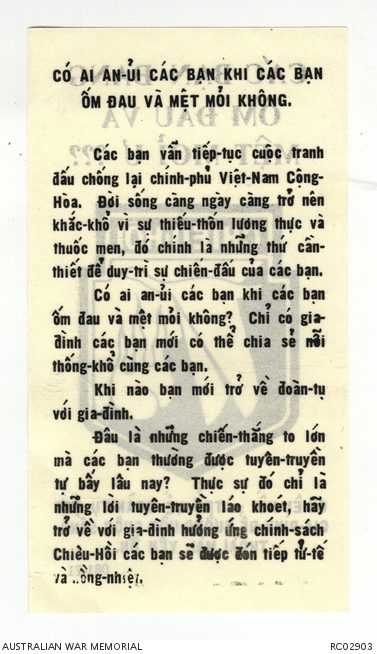 CÓ AI AN-ỦI CÁC BẠN KHI CÁC BẠN
ỐM ĐAU VÀ MỆT MỎI KHÔNG.
Các bạn vẫn tiếp-tục cuộc tranh
đấu chống lại chính-phủ Việt-Nam Cộng-
Hòa. Đời sống càng ngày càng trở nên
khắc-khổ vì sự thiếu-thốn lương thực và
thuốc men, đó chính là những thứ cần-
thiết để duy-trì sự chiến-đấu của các bạn.
Có ai an-ủi các bạn khi các bạn
ốm đau và mệt mỏi không? Chỉ có gia-
đình các bạn mới có thể chia sẻ nỗi
thống-khổ cùng các bạn.
Khi nào bạn mới trở về đoàn-tụ
với gia-đình.
Đâu là những chiến-thắng to lớn
mà các bạn thường được tuyên-truyền
tự bấy lâu nay? Thực sự đó chỉ là
những lời tuyên-truyền láo khoét, hãy
trở về với gia-đình hưởng ứng chính-sách
Chiêu-Hồi các bạn sẽ được đón tiếp tử-tế
và nồng-nhiệt.
AUSTRALIAN WAR MEMORIAL RC02903